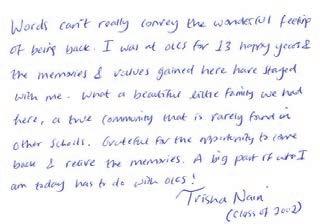 Words can't really convey the wonderful feeling
of being back. I was at OLCS for 13 happy years &
the memories & values gained here have stayed
with me. What a beautiful little family we had
here, a true community that is rarely found in
other schools. Grateful for the opportunity to come
back & relive the memories. A big part of who I
am today has to do with OLCS!
Trisha Nain
(Class of 2002)